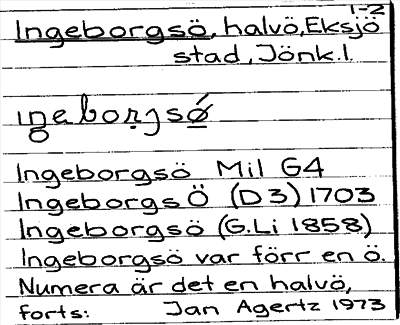 1-2
Ingeborgsö, halvö, Eksjö
stad, Jönk.l.
Ingeborgsö Mil G4
Ingeborgs Ö (D3) 1703
Ingeborgsö (G.Li 1858)
Ingeborgsö var förr en ö.
Numera är det en halvö,
forts: Jan Agertz 1973